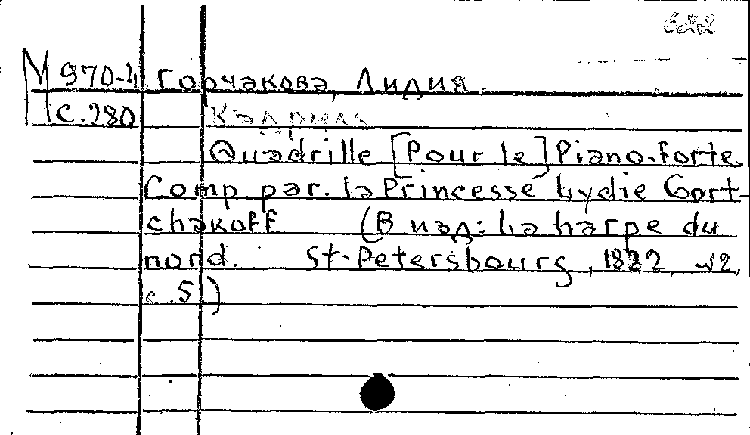 М 970-4 Горчакова, Лидия.
с.280 Кадриль
Quadrille [Pour le] Piano-forte
Comp par. la Princesse Lydie Gort-
chakoff (В изд: La harpe du
nord. St-Petersbourg, 1822, №2,
с.5)